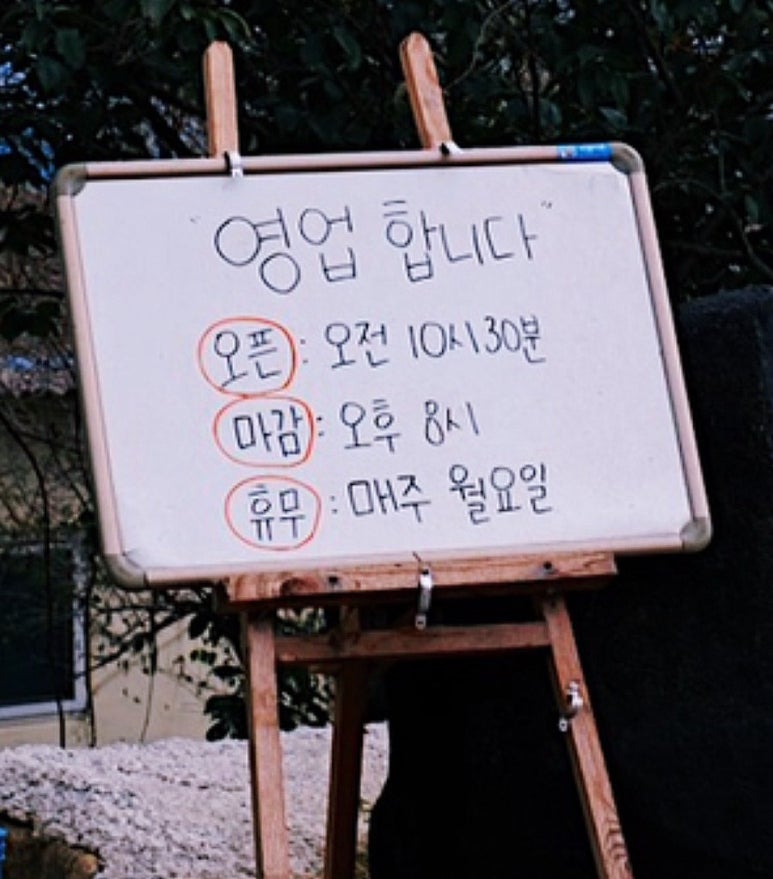 "영업 합니다"
오픈 : 오전 10시 30분
마감 : 오후 8시
휴무 : 매주 월요일